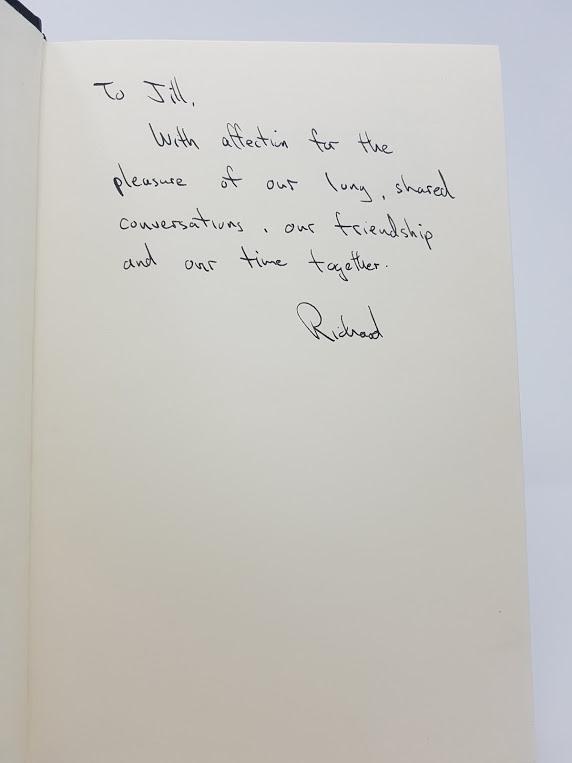 To Jill,
With affection for the
pleasure of our long, shared
conversations, our friendship
and our time together.
Richard